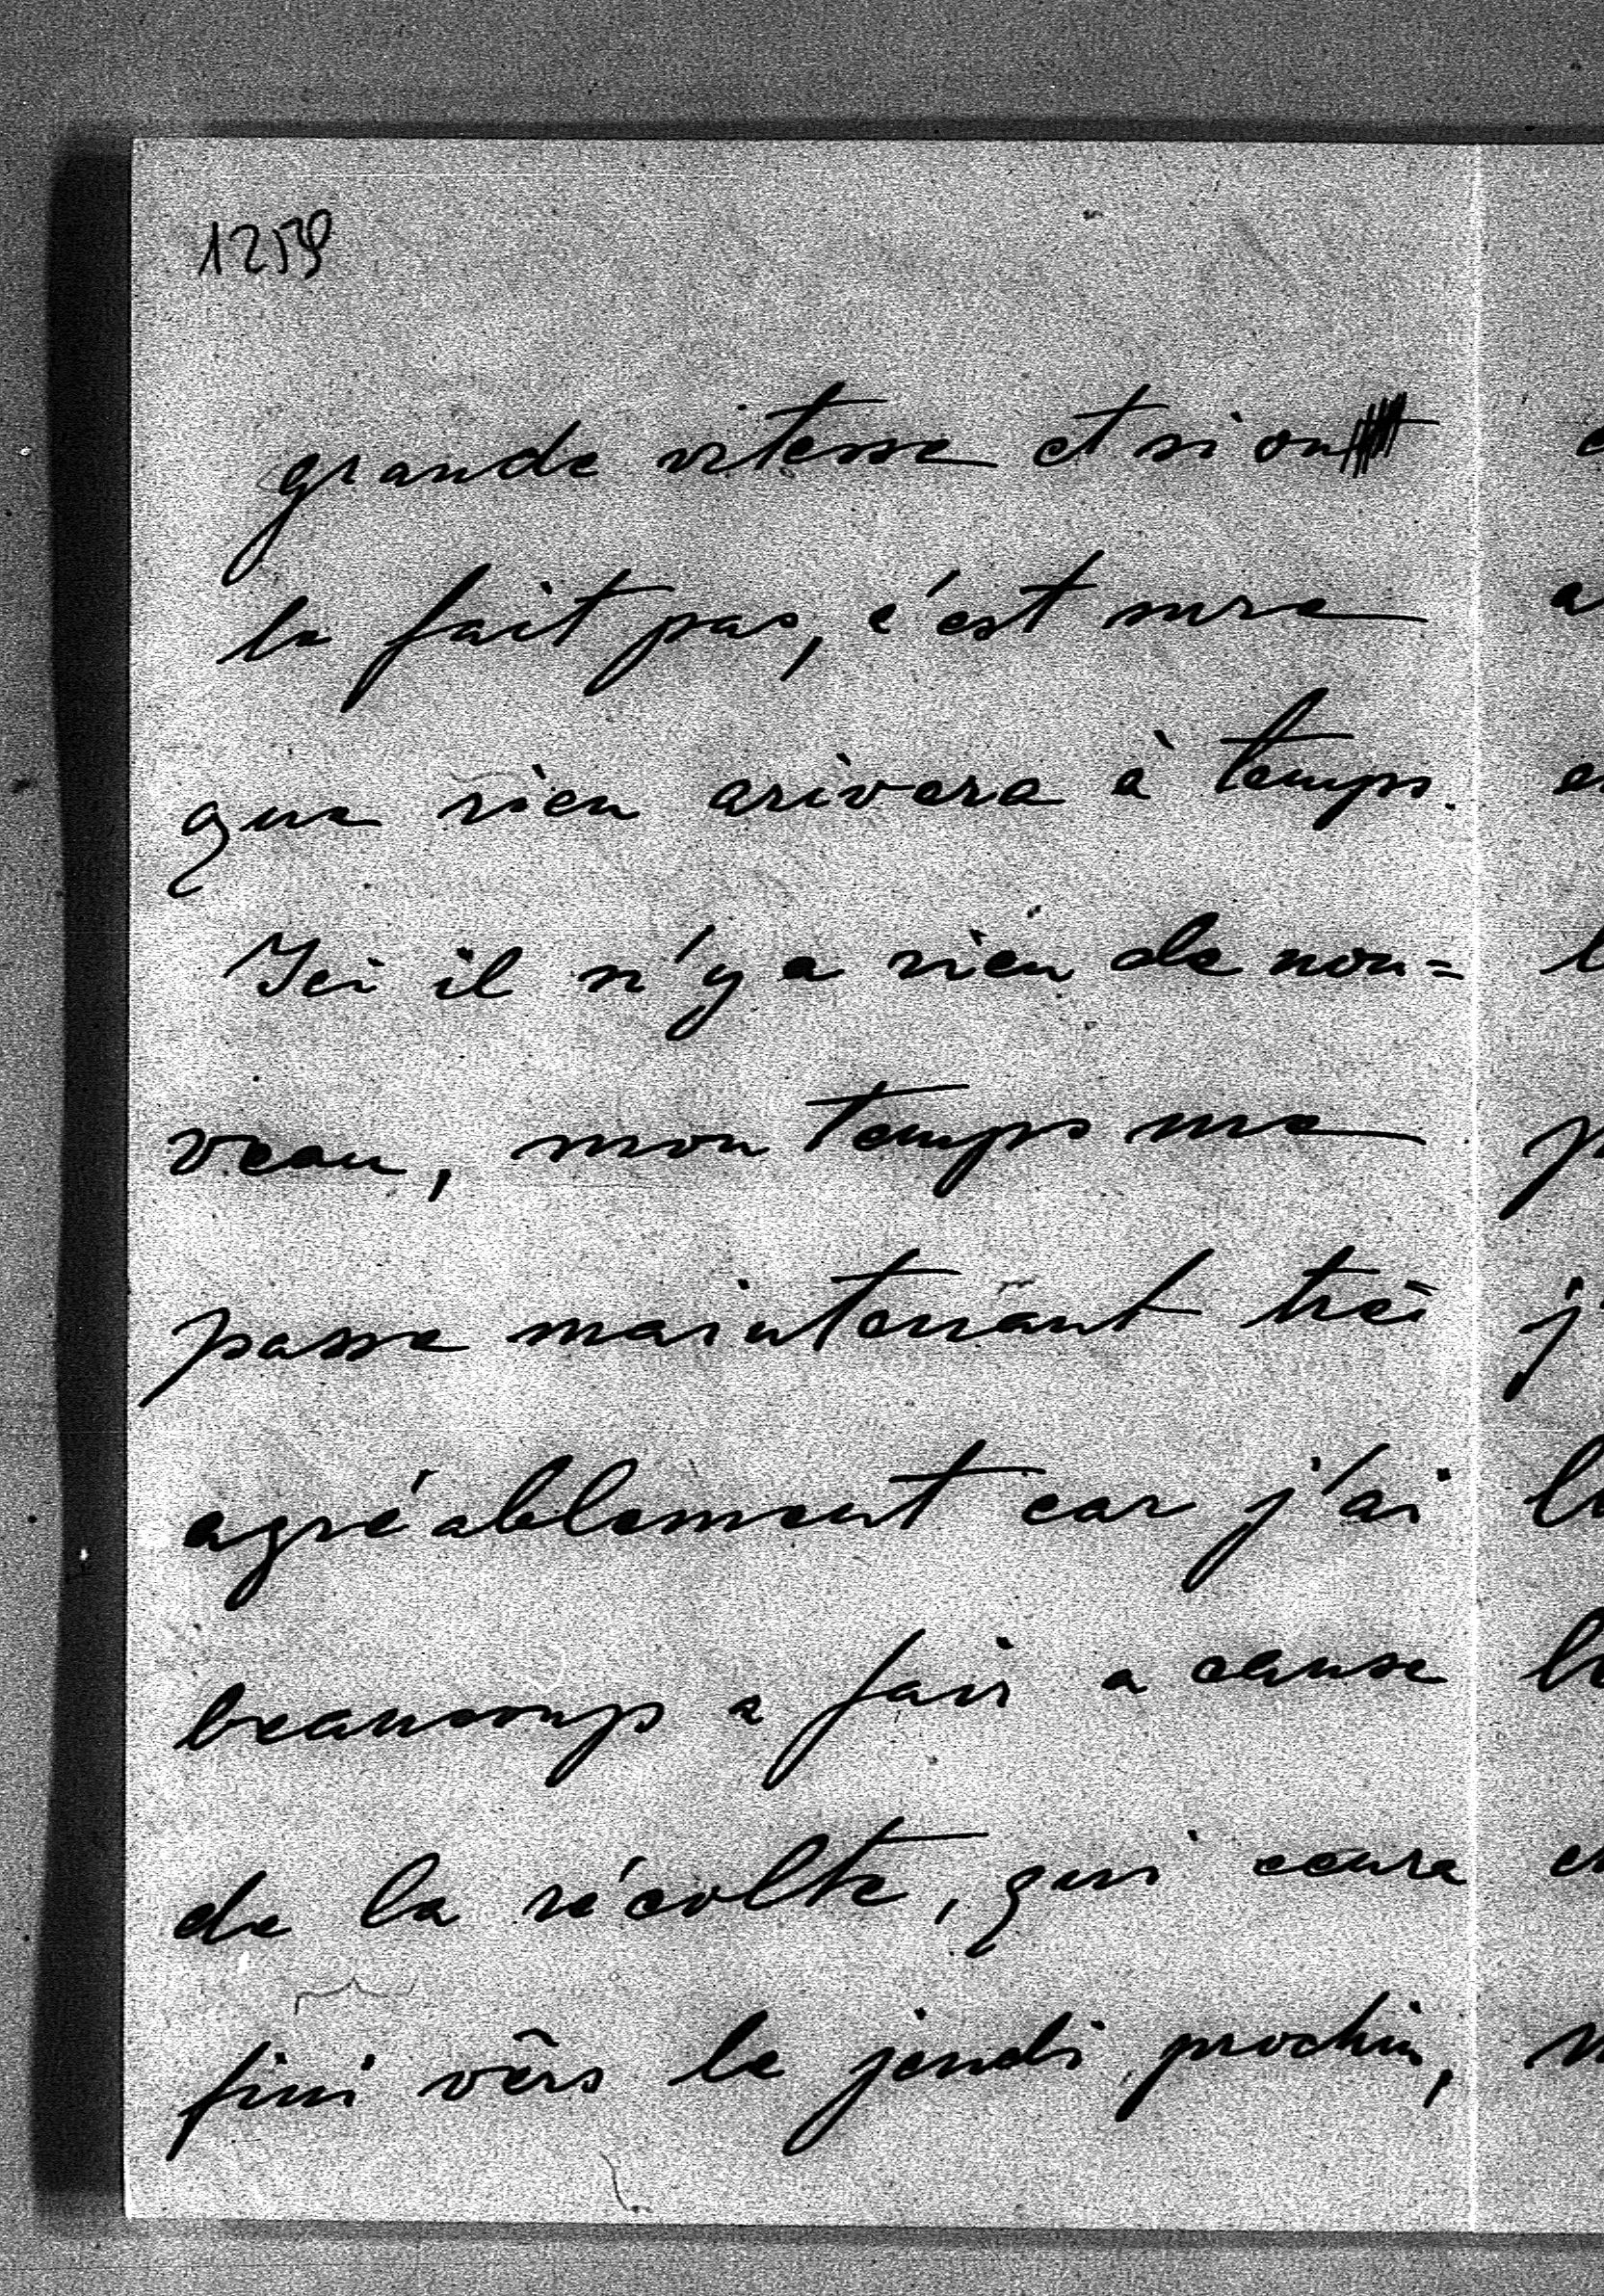 1259
grande vitesse et si on
le fait pas, c'est sure
que rien arivera à temps.
Ici il n'y a rien de nou=
veau, mon temps me
passe maintenant très
agréablement car j'ai
beaucoup a fair a cause
de la récolte, qui
fini vêrs le jeudi prochin,